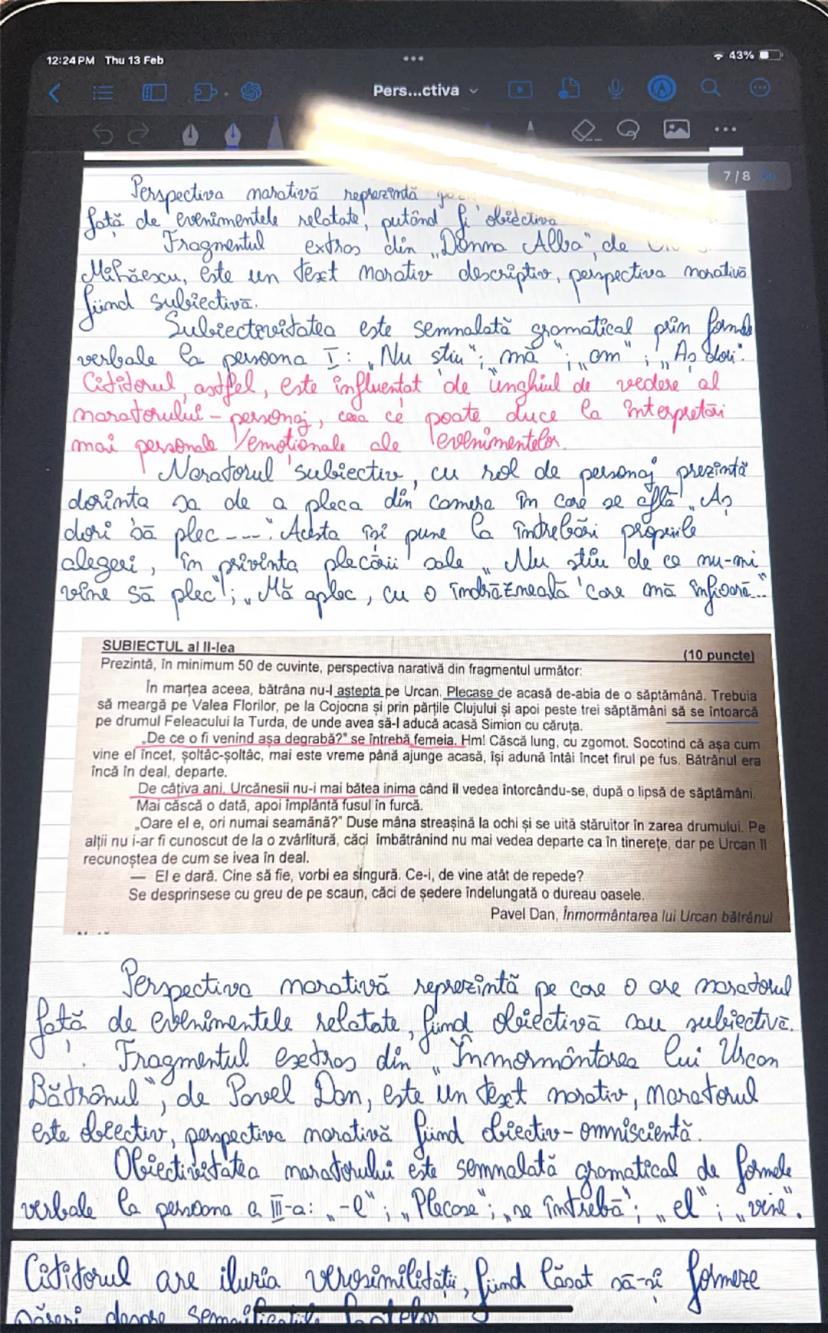 12:24 PM Thu 13 Feb
43%
Pers...ctiva
7/8
Perspectiva narativă reprezintă
față de evenimentele relatate, putând fi obiectiva
Fragmentul extras din „Donna Alba", de
Mihăescu, este un text narativ descriptiv, perspectiva narativă
fiind subiectivă.
Subiectivitatea este semnalată gramatical prin forme
verbale la persoana I: „Nu știu"; „mă"; „am"; „Aș dori".
Cititorul, astfel, este influențat de unghiul de vedere al
naratorului - personaj, ceea ce poate duce la interpretări
mai personale /emoționale ale evenimentelor.
Naratorul subiectiv, cu rol de personaj prezintă
dorința sa de a pleca din camera în care se află „Aș
dori să plec ----". Acesta își pune la întrebări propriile
alegeri, în privința plecării sale „Nu știu de ce nu-mi
vine să plec"; „Mă aplec, cu o îndrăzneală care mă înfioară..."
SUBIECTUL al II-lea (10 puncte)
Prezintă, în minimum 50 de cuvinte, perspectiva narativă din fragmentul următor:
În marțea aceea, bătrâna nu-l aștepta pe Urcan. Plecase de acasă de-abia de o săptămână. Trebuia
să meargă pe Valea Florilor, pe la Cojocna și prin părțile Clujului și apoi peste trei săptămâni să se întoarcă
pe drumul Feleacului la Turda, de unde avea să-l aducă acasă Simion cu căruța.
„De ce o fi venind așa degrabă?" se întrebă femeia. Hm! Căscă lung, cu zgomot. Socotind că așa cum
vine el încet, șoltâc-șoltâc, mai este vreme până ajunge acasă, își adună întâi încet firul pe fus. Bătrânul era
încă în deal, departe.
De câțiva ani, Urcănesii nu-i mai bătea inima când îl vedea întorcându-se, după o lipsă de săptămâni.
Mai căscă o dată, apoi împlântă fusul în furcă.
„Oare el e, ori numai seamănă?" Duse mâna streașină la ochi și se uită stăruitor în zarea drumului. Pe
alții nu i-ar fi cunoscut de la o zvârlitură, căci îmbătrânind nu mai vedea departe ca în tinerețe, dar pe Urcan îl
recunoștea de cum se ivea în deal.
— El e dară. Cine să fie, vorbi ea singură. Ce-i, de vine atât de repede?
Se desprinsese cu greu de pe scaun, căci de ședere îndelungată o dureau oasele.
Pavel Dan, Înmormântarea lui Urcan bătrânul
Perspectiva narativă reprezintă pe care o are naratorul
față de evenimentele relatate, fiind obiectivă sau subiectivă.
Fragmentul extras din „Înmormântarea lui Urcan
Bătrânul", de Pavel Dan, este un text narativ, naratorul
este obiectiv, perspectiva narativă fiind obiectiv-omniscientă.
Obiectivitatea naratorului este semnalată gramatical de formele
verbale la persoana a III-a: „-l"; „Plecase"; „se întrebă"; „el"; „vine".
Cititorul are iluzia verosimilității, fiind lăsat să-și formeze
păreri despre semnificațiile faptelor